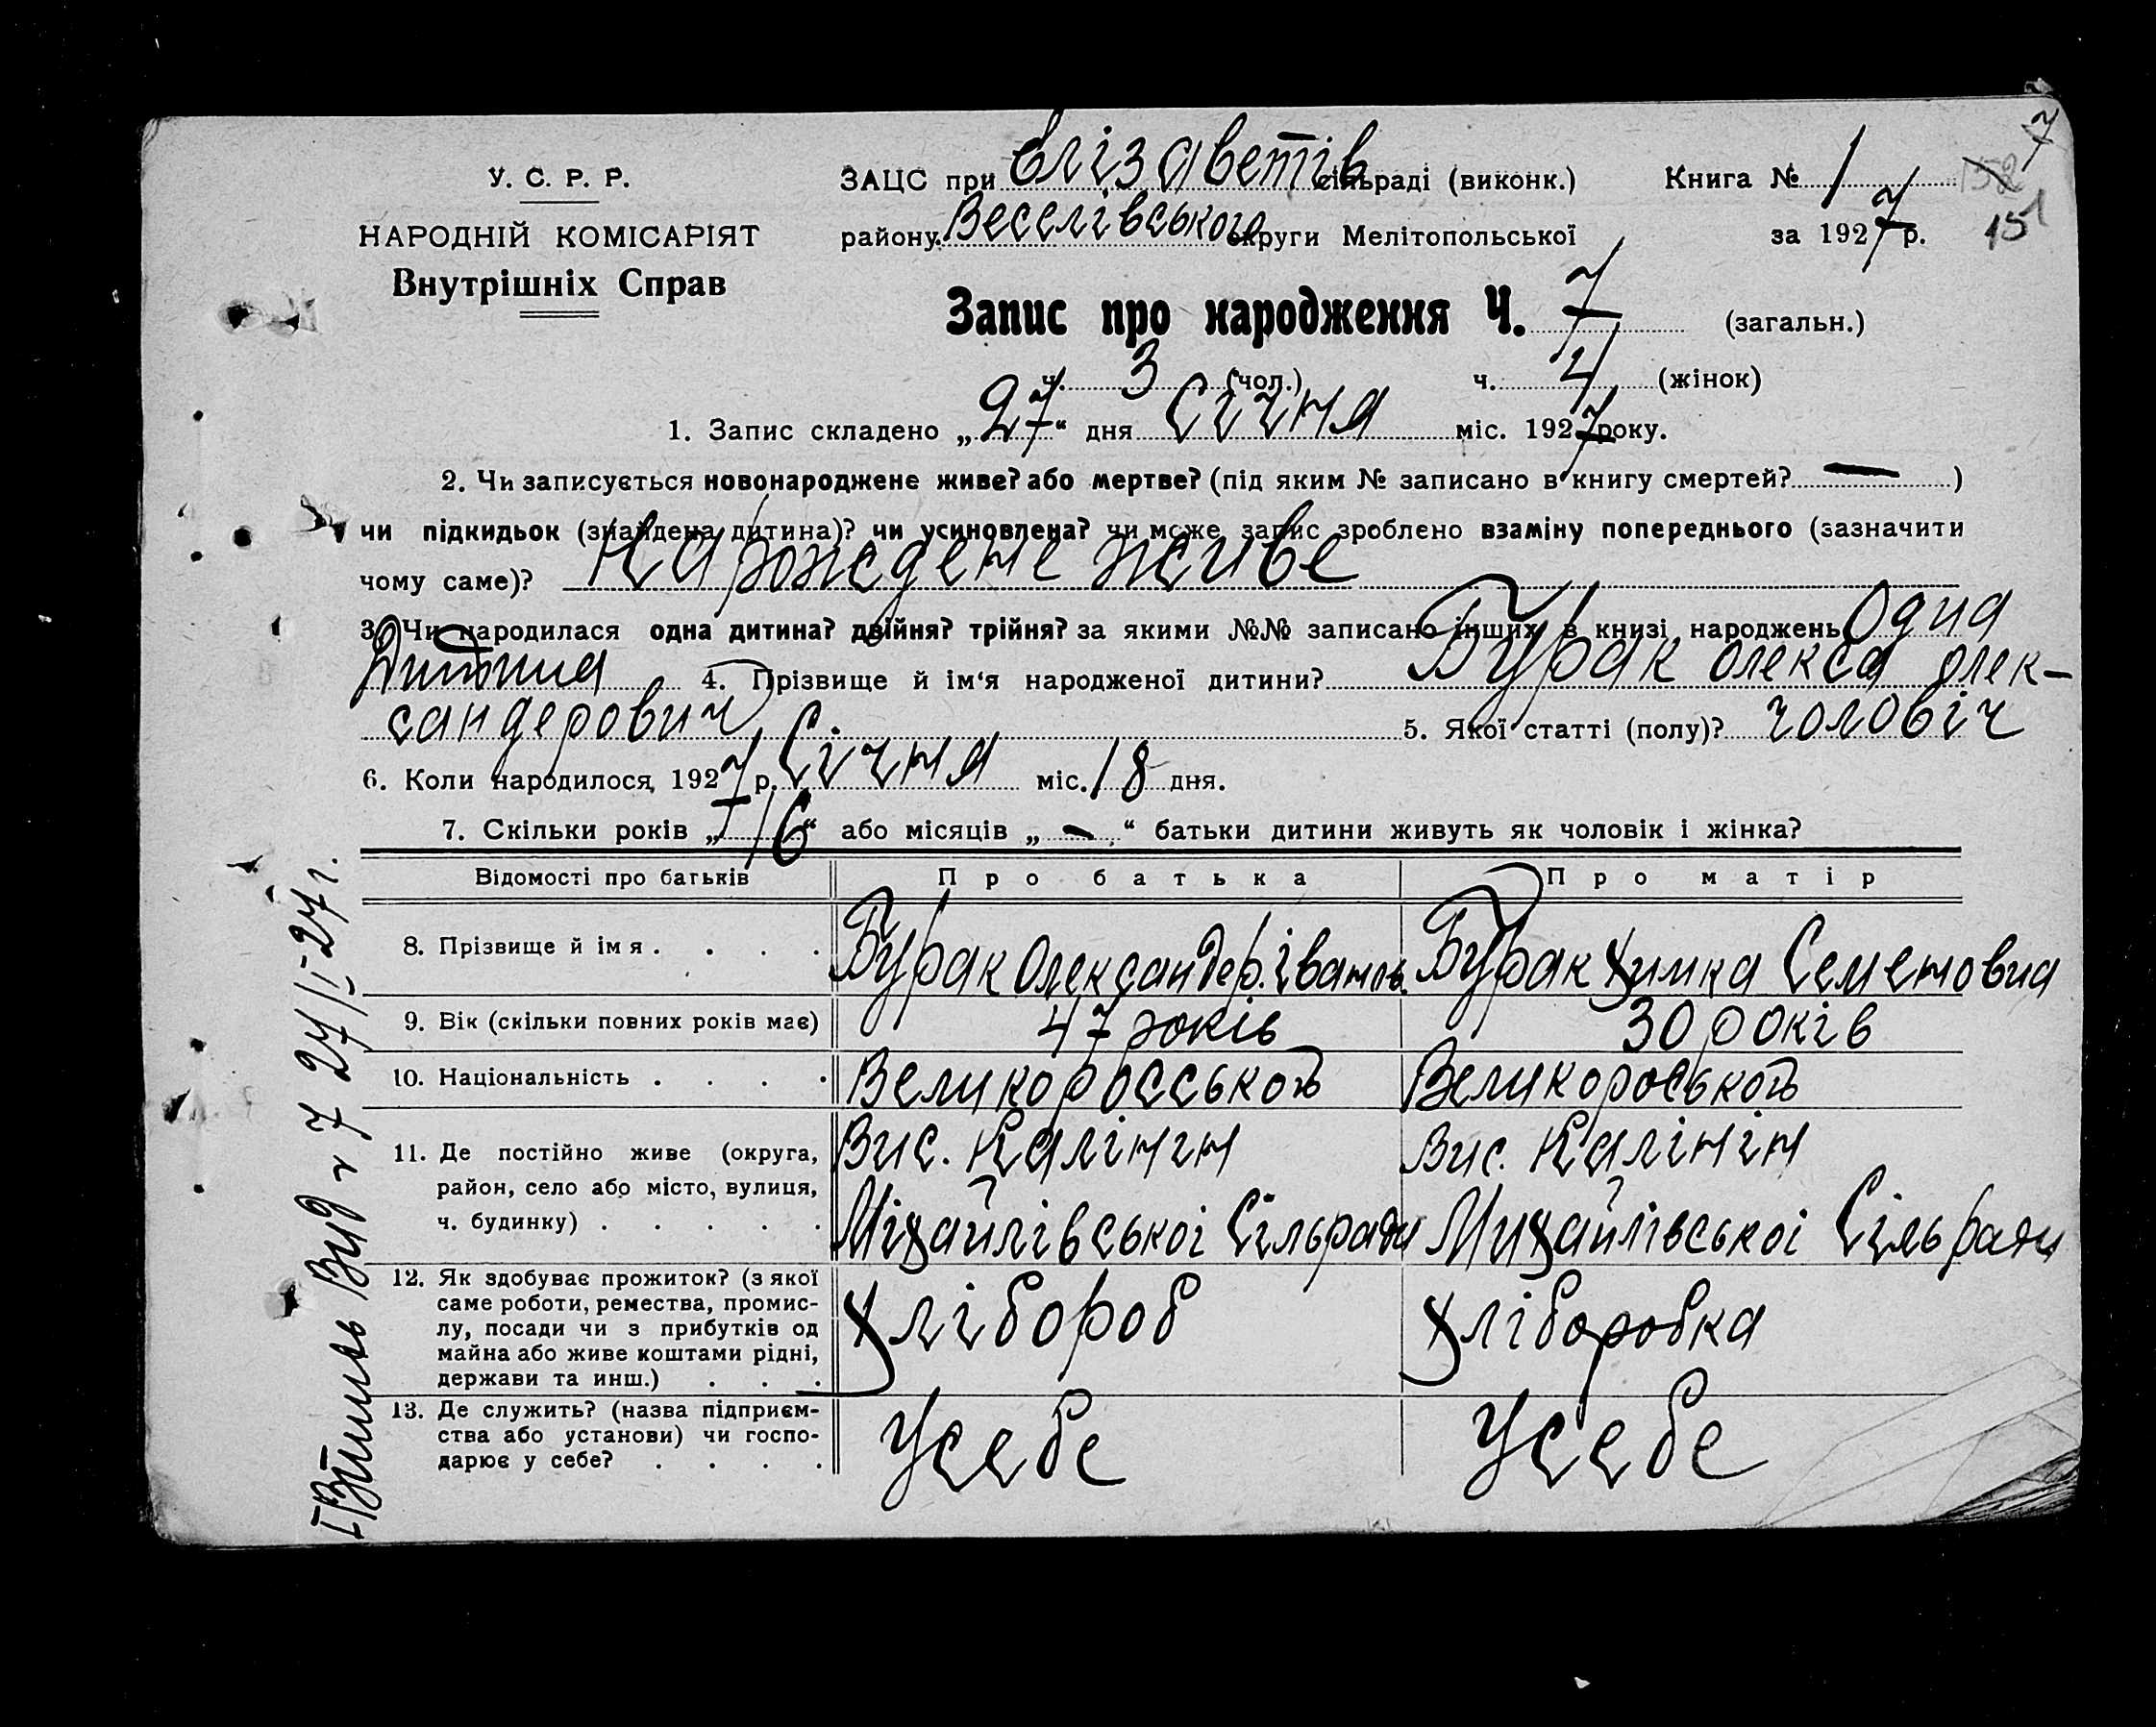 7
У. С. Р. Р.
НАРОДНІЙ КОМІСАРІЯТ
Внутрішніх Справ
ЗАЦС при Єлізаветів сільраді (виконк.) Книга № 1 152
151
району Веселівського округи Мелітопольської за 1927 р.
Запис про народження Ч. 7 (загальн.)
ч. 3 (чол.) ч. 4 (жінок)
1. Запис складено „27“ дня Січня міс. 1927 року.
2. Чи записується новонароджене живе? або мертве? (під яким № записано в книгу смертей? — )
чи підкидьок (знайдена дитина)? чи усиновлена? чи може запис зроблено взаміну попереднього (зазначити
чому саме)? Нарожедене живе
3. Чи народилася одна дитина? двійня? трійня? за якими №№ записано інших в книзі народжень Одна
Дитина 4. Прізвище й ім‘я народженої дитини? Бурак Олекса Олек-
сандерович 5. Якої статті (полу)? чоловіч
6. Коли народилося, 1927 р. Січня міс. 18 дня.
7. Скільки років „16“ або місяців „ — “ батьки дитини живуть як чоловік і жінка?
Відомості про батьків Про батька Про матір
8. Прізвище й імя . . . . Бурак Олександер. Іванов. Бурак Химка Семеновна
9. Вік (скільки повних років має) 47 років 30 років
10. Національність . . . . Великоросської Великороської
11. Де постійно живе (округа, Вис. Калінін Вис. Калінін
район, село або місто, вулиця,
ч. будинку) . . . . . Міхайлівської Сільради Михайлівської Сільради
12. Як здобуває прожиток? (з якої
саме роботи, ремества, промис- Хлібороб Хліборобка
лу, посади чи з прибутків од
майна або живе коштами рідні,
держави та инш.) . . .
13. Де служить? (назва підприєм-
ства або установи) чи госпо- Усебе Усебе
дарює у себе? . . . .
Вид 7 27/I-27 г.